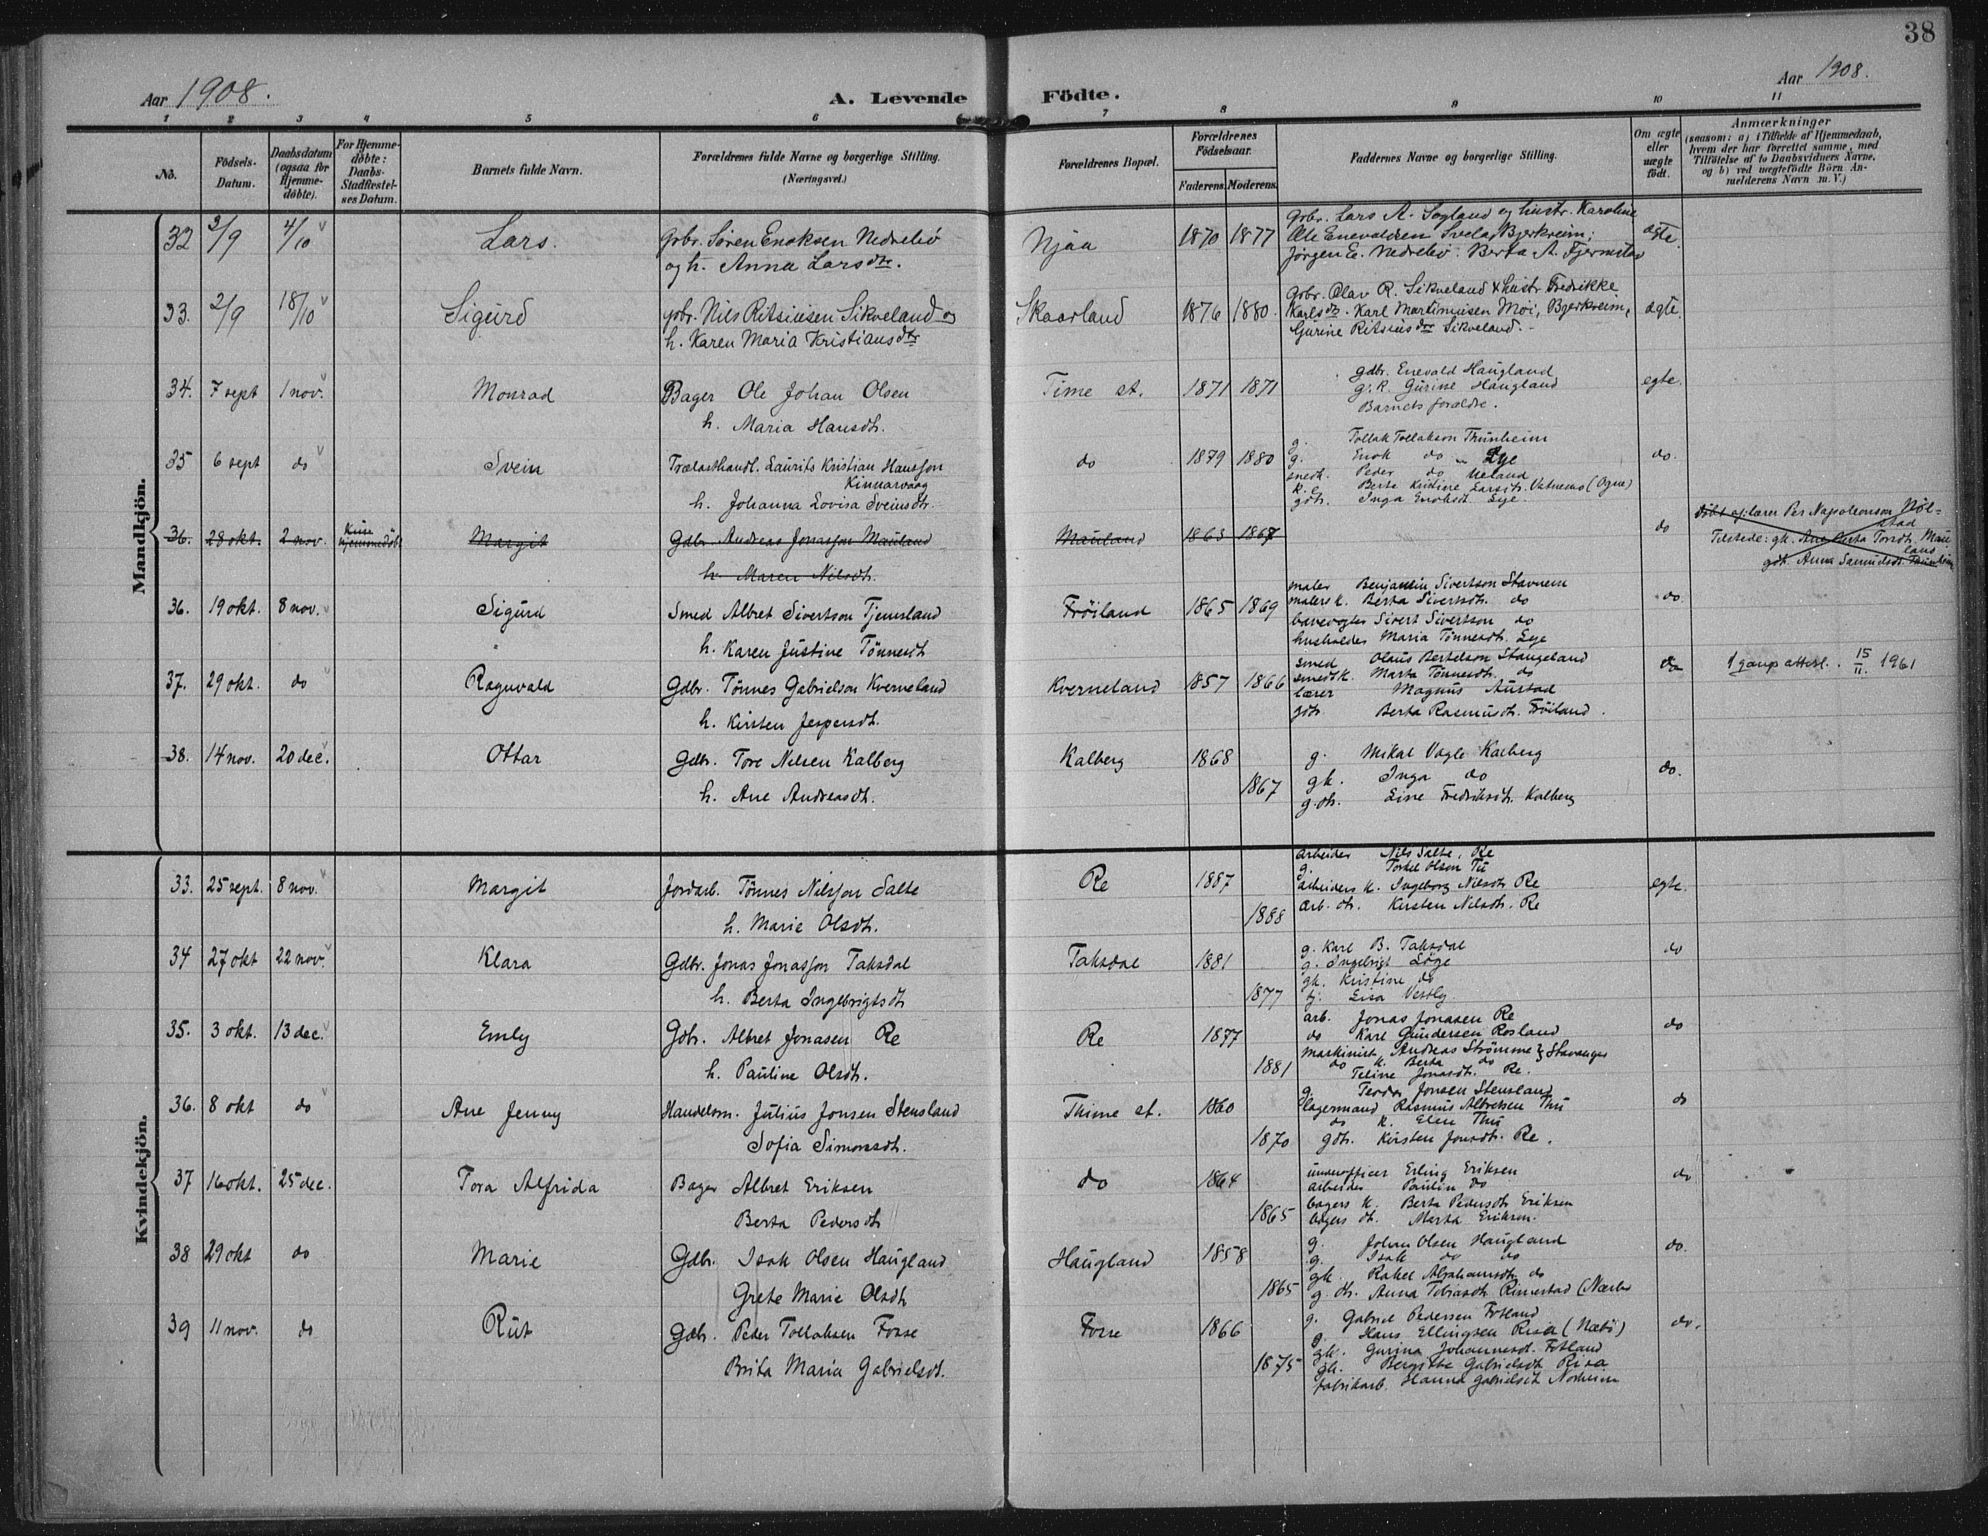 38
Aar 1908.
A. Levende Födte.
Aar 1908.
1 2 3 4 5 6 7 8 9 10 11
No.
Födsels-Datum.
Daabsdatum (ogsaa for Hjemme-döbte).
For Hjemme-döbte: Daabs-Stadfæstel-ses Datum.
Barnets fulde Navn.
Forældrenes fulde Navne og borgerlige Stilling. (Næringsvei.)
Forældrenes Bopæl.
Forældrenes Födselsaar.
Faderens. Moderens.
Faddernes Navne og borgerlige Stilling.
Om ægte eller uægte födt.
Anmærkninger
(saasom: a) i Tilfælde af Hjemmedaab, hvem der har forrettet samme, med Tilföielse af to Daabsvidners Navne, og b) ved uægtefödte Börn An-melderens Navn m. V.)
Mandkjön.
32 3/9 4/10 Lars. Gbr. Søren Enoksen Nedrebø Njaa 1870 1877 Gbr. Lars A. Sogland og hustr. Karoline ægte.
og h. Anna Larsdtr. Ole Enevaldsen Svela, Bjerkreim;
Jørgen E. Nedrebø. Berta A. Fjermstad
33. 2/9 18/10 Sigurd Gbr. Nils Ritsiusen Sikveland og Skaarland 1876 1880 Gbr. Olav R. Sikveland & hustr. Fredrikke ægte.
h. Karen Maria Kristiansdtr Karlsdtr. Karl Martiniusen Moi, Bjerkreim,
Gurine Ritsiusdtr Sikveland.
34. 7 sept 1 nov. Monrad Bager Ole Johan Olsen Time st. 1871 1871 gdbr. Enevald Haugland egte.
h. Maria Hansdt. g. k. Gurine Haugland
Barnets forældre.
35 6 sept do Svein Trælasthandl. Laurits Kristian Hansson do 1879 1880 g. Tollak Tollakson Thunheim do.
Kinnarvaag g. Enok do Lye
h. Johanna Lovisa Sveinsdt. smedk. Peder do Ueland
k. Berta Kristine Larsdt. Vatnemo (Ogne)
gdt. Inga Enoksdt. Lye.
36. 28 okt. 2 nov. hjemmedøbt Margit Gdbr. Andreas Jonasson Mauland Mauland 1863 1867 do døbt af lærer Per Napoleonson Njølstad
h. Maren Nilsdt. Tilstede: gk. Ane Berta Torsdt. Mauland
gdt. Anna Samuelsdt. Thunheim
36. 19 okt. 8 nov. Sigurd Smed Albret Sivertson Tjensland Frøiland 1865 1869 maler Benjamin Sivertson Stavnem do.
h. Karen Justine Tønnesdt malers k. Berta Sivertsdt. do
banevogter Sivert Sivertson do
husholder Maria Tønnesdt. Lye
37. 29 okt. do Ragnvald Gdbr. Tønnes Gabrielson Kverneland Kverneland 1857 1866 smed Olaus Bertelson Stangeland do 1 gang atterl. 15/II. 1961
h. Kirsten Jespersdt. smeds k. Marta Tønnesdt. do
lærer Magnus Austad
gdt. Berta Rasmusdt. Frøiland.
38. 14 nov. 20 dec. Ottar Gdbr. Tore Nilsen Kalberg Kalberg 1868 g. Mikal Vagle Kalberg do.
h. Ane Andreasdt. 1867 gk. Inga do
g. dt. Line Fredriksdt. Kalberg
Kvindekjön.
33. 25 sept. 8 nov. Margit Jordarb. Tønnes Nilsson Salte Re 1887 arbeider Nils Salte, Re egte.
h. Marie Olsdt. 1888 g. Torkel Olson Tu
arbeiders k. Ingeborg Nilsdt. Re
arb. dt. Kirsten Nilsdt. Re
34 27 okt 22 nov. Klara Gdbr. Jonas Jonasson Taksdal Taksdal 1881 g. Karl B. Taksdal do
h. Berta Ingebrigtsdt 1877 g. Ingebrigt Løge
gk. Kristine do
tj. Lisa Vestly
35. 3 okt. 13 dec. Emly Gdbr. Albret Jonasen Re Re 1877 arb. Jonas Jonasen Re do
h. Pauline Olsdt. 1881 do Karl Gundersen Rosland
maskinist Andreas Strømme Stavanger
do k. Berta do
Teline Jonasdt. Re.
36. 8 okt do Ane Jenny Handelsm. Julius Jonsen Stensland Thime st. 1860 g. Teodor Jonsen Stensland do
Sofia Simonsdt. 1870 lagermand Rasmus Albretsen Thu
do k. Elen Thu
gdt. Kirsten Jonsdt. Re.
37 16 okt. 25 dec. Tora Alfrida Bager Albret Eriksen do 1864 underofficer Erling Eriksen do
Berta Pedersdt 1865 arbeider Paulin do
bagers k. Berta Pedersdt Eriksen
bagers dt. Marta Eriksen.
38 29 okt do Marie Gdbr. Isak Olsen Haugland Haugland 1858 g. Johan Olsen Haugland do.
Grete Marie Olsdt 1865 g. Isak do do
gk. Rakel Abrahamsdt do
g. dt. Anna Tobiasdt Rimestad (Nærbø
39 11 nov. do Rut Gdbr. Peder Tollaksen Fosse Fosse 1866 g. Gabriel Pedersen Fotland do.
Brita Maria Gabrielsdt. 1875 g. Hans Ellingsen Risa (Nærbø)
gk. Gurina Johannesdt. Fotland
gk. Bergitte Gabrielsdt Risa
fabrikarb. Hanna Gabrielsdt Norheim